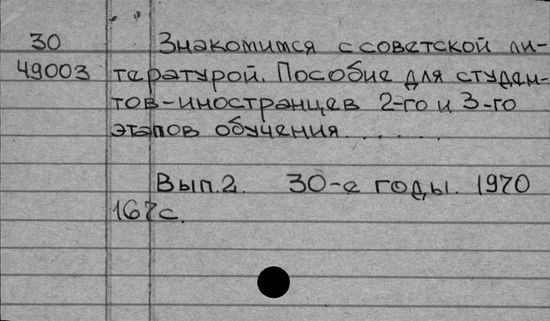 30 Знакомимся с советской ли-
49003 тературой. Пособие для студен-
тов-иностранцев 2-го и 3-го
этапов обучения......
Вып. 2. 30-е годы. 1970
167 с.